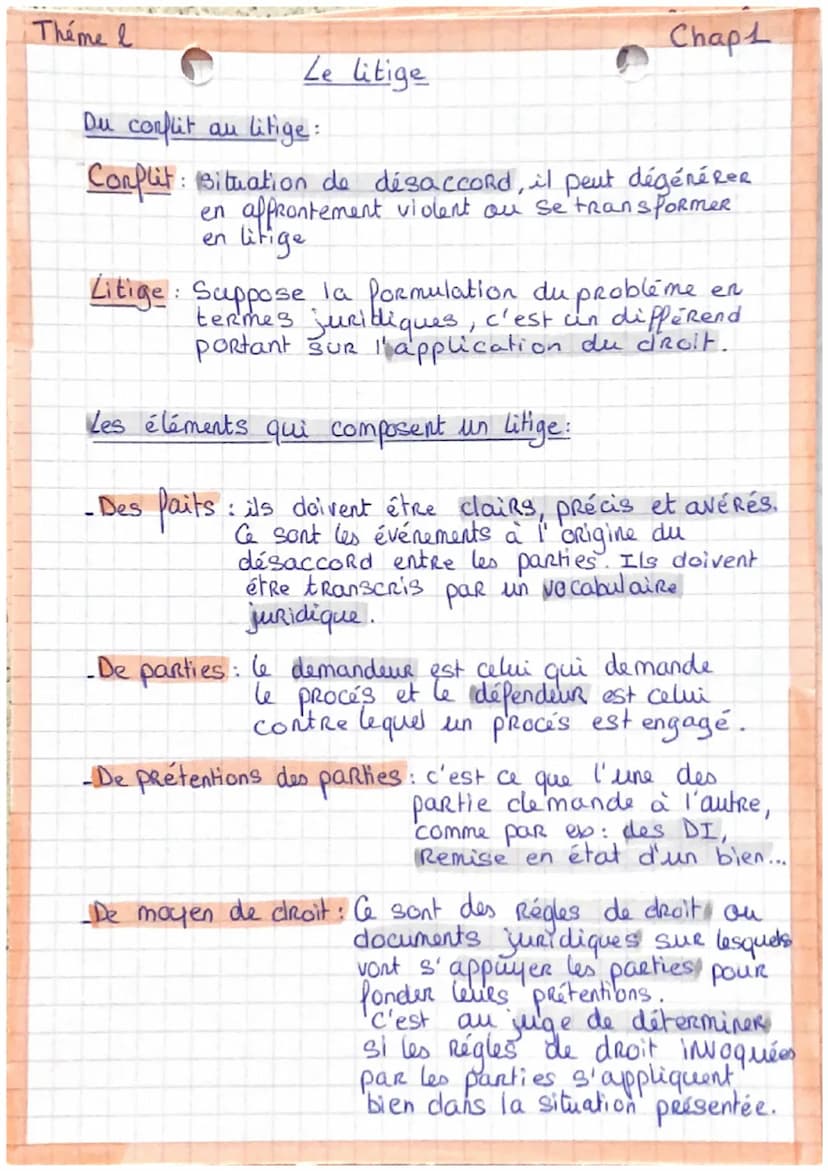 Théme 2
Chap1
Le litige
Du conflit au litige :
Conflit : Situation de désaccord, il peut dégénérer
en affrontement violent ou se transformer
en litige
Litige : Suppose la formulation du probléme en
termes juridiques, c'est un différend
portant sur l'application du droit.
Les éléments qui composent un litige :
- Des faits : ils doivent étre clairs, précis et avérés.
Ce sont les événements à l'origine du
désaccord entre les parties. Ils doivent
étre transcris par un vocabulaire
juridique.
- De parties : le demandeur est celui qui demande
le procés et le défendeur est celui
contre lequel un procés est engagé.
- De prétentions des parties : c'est ce que l'une des
partie demande à l'autre,
comme par ex : des DI,
Remise en état d'un bien...
- De moyen de droit : Ce sont des Régles de droit ou
documents juridiques sur lesquels
vont s'appuyer les parties pour
fonder leurs prétentions.
C'est au juge de déterminer
si les Régles de droit invoquées
par les parties s'appliquent
bien dans la situation présentée.